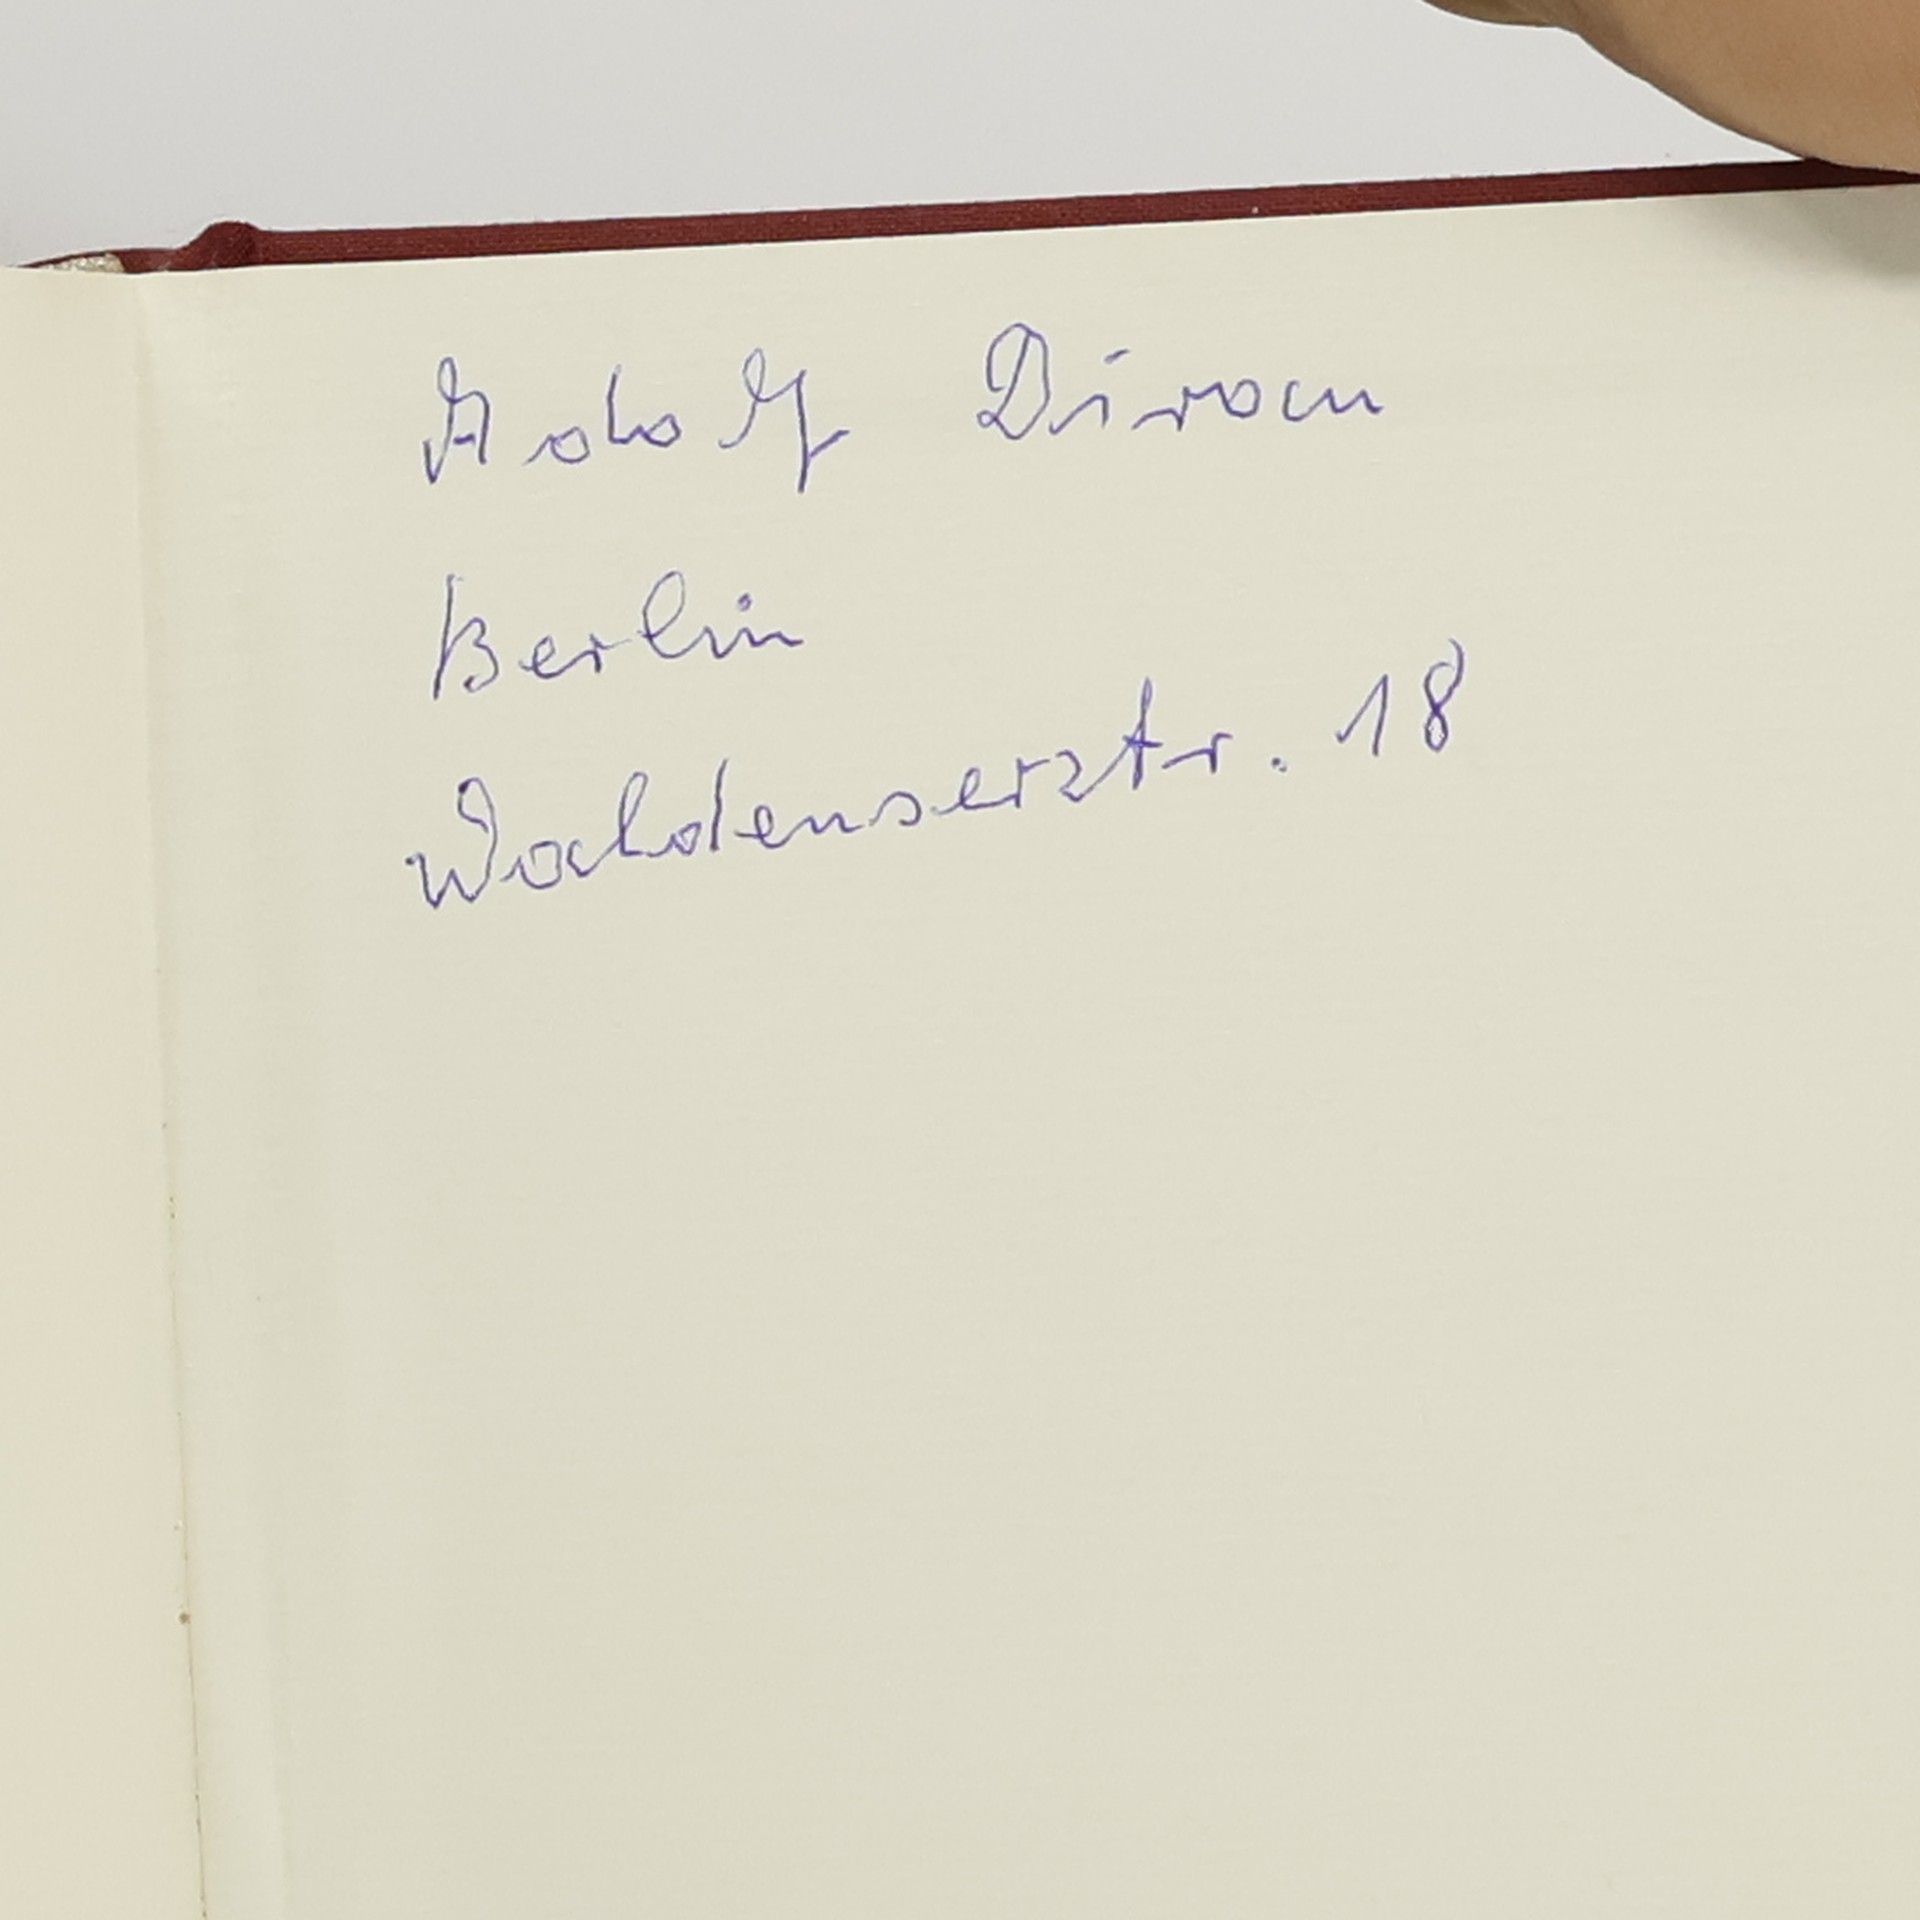 Adolf Diram
Berlin
Waldenserstr. 18